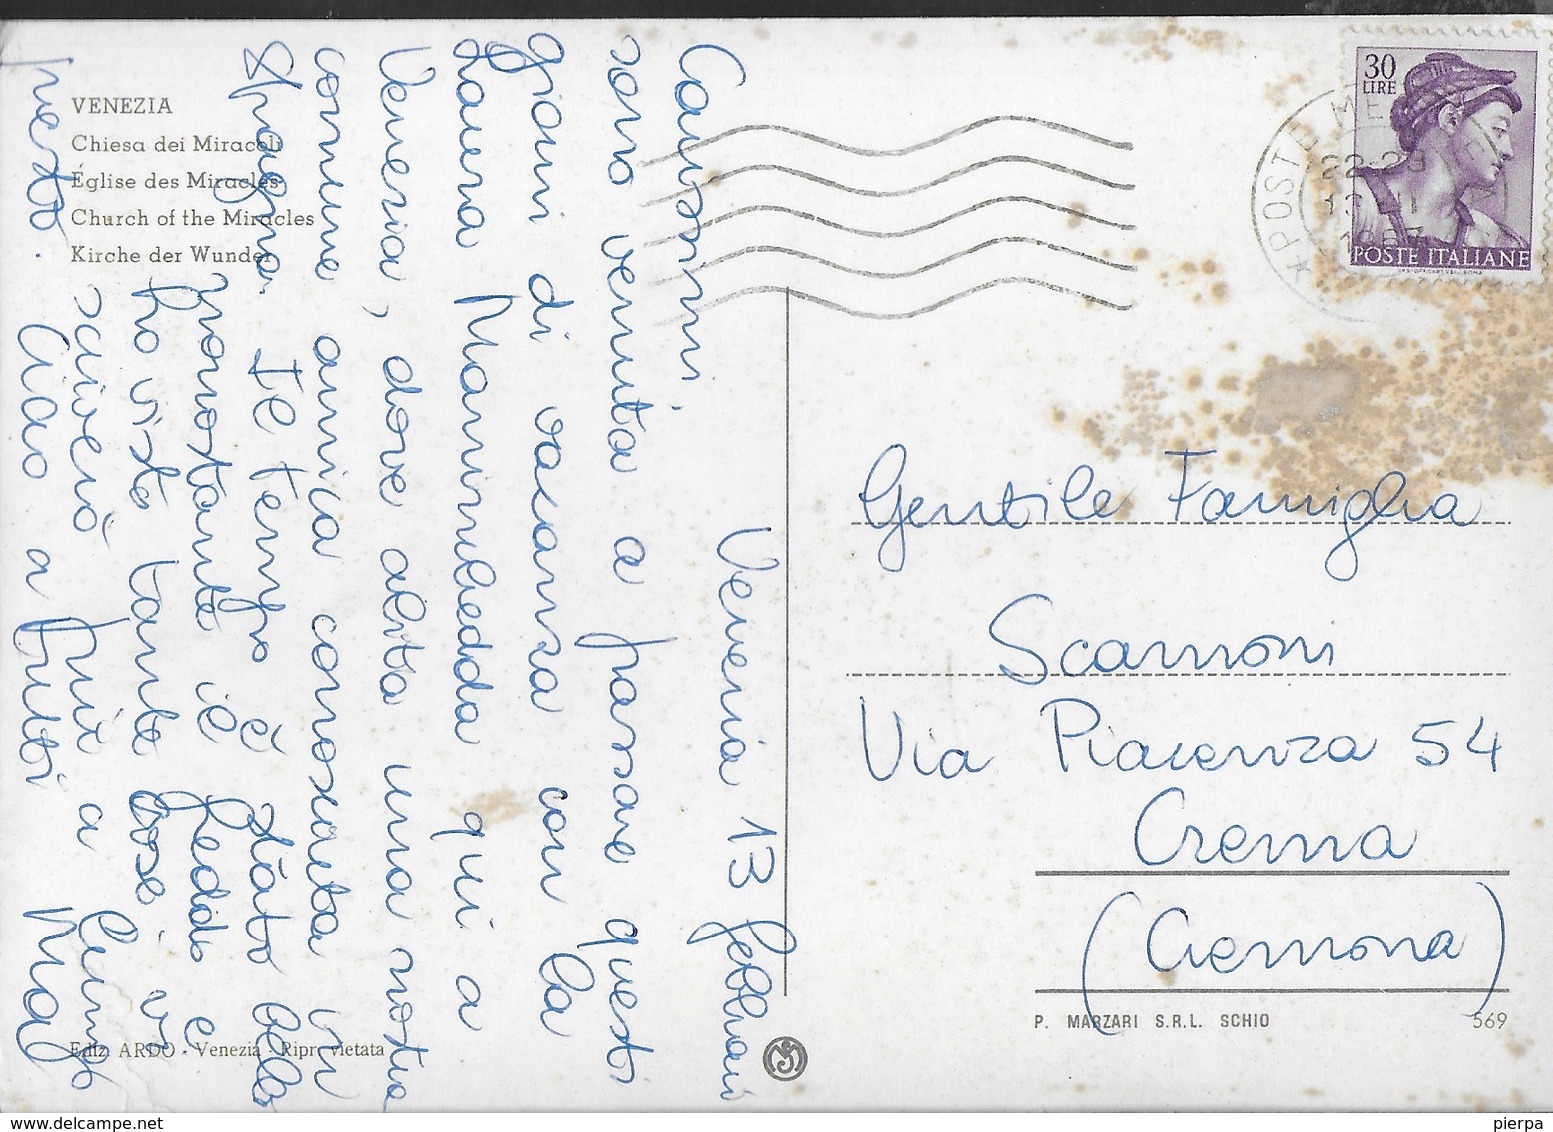 VENEZIA
Chiesa dei Miracoli
Église des Miracles
Church of the Miracles
Kirche der Wunder
Venezia 13 febbraio
Carissimi,
sono venuta a passare questi
giorni di vacanza con la
Laura Mannubedda qui a
Venezia, dove abita una nostra
comune amica conosciuta in
Spagna. Il tempo è stato bello
nonostante il freddo e
ho visto tante cose vi
scriverò più a lungo
presto. Ciao a tutti
Ediz. ARDO - Venezia - Ripr. vietata
30
LIRE
POSTE ITALIANE
22-23
Gentile Famiglia
Scamoni
Via Piacenza 54
Crema
(Cremona)
P. MARZARI S.R.L. SCHIO
569
www.delcampe.net
pierpa